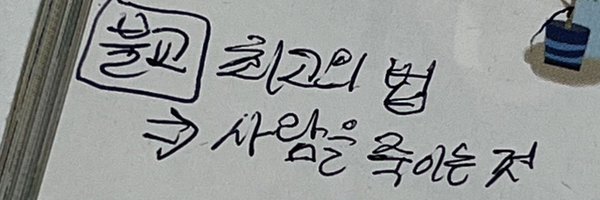 불교 최고의 법
⇒ 사람을 죽이는 것